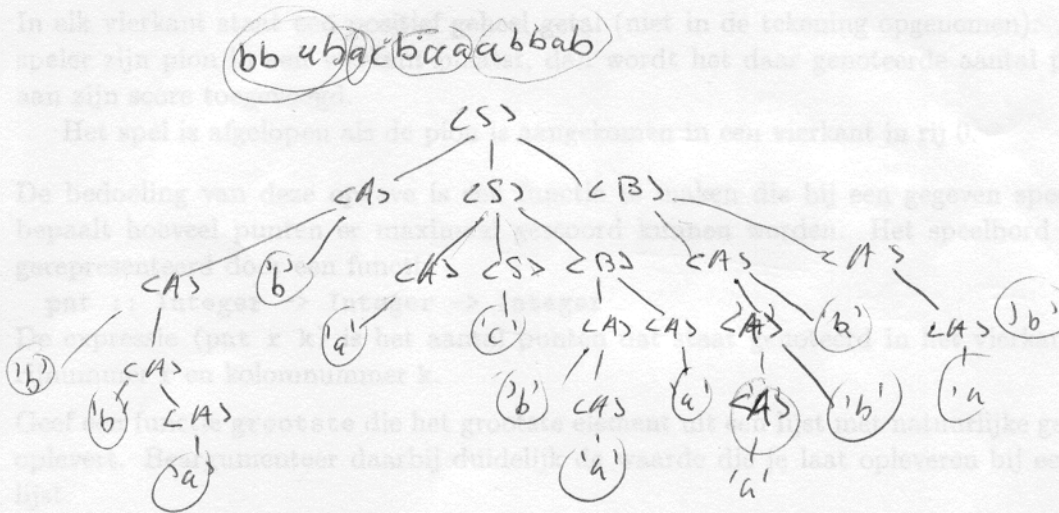 In elk vierkant staat een positief geheel getal (niet in de tekening opgenomen):
bb aba baaabbab
speler zijn pion wordt het daar genoteerde aantal
aan zijn score toegevoegd.
<S>
Het spel is afgelopen als de pion is aangekomen in een vierkant in rij 0.
<A> <S> <B>
De bedoeling van deze opgave is een functie te maken die bij een gegeven
bepaalt hoeveel punten er maximaal gescoord kunnen worden. Het speelbord
<A> 'b' <A> <S> <B> <A> <A>
gerepresenteerd door een functie
pnt :: Integer -> Integer -> Integer
'a' 'a' <A> <A> <A> 'b' <A> 'b'
De expressie (pnt r k) is het aantal punten dat staat genoteerd in het
'b' <A>
rijnummer r en kolomnummer k.
'b' <A> 'b' <A> 'a' <A> 'b' 'a
Geef een functie grootste die het grootste element uit een lijst met natuurlijke
oplevert. Beargumenteer daarbij duidelijk de waarde die je laat opleveren bij
'a' 'a' 'a'
lijst